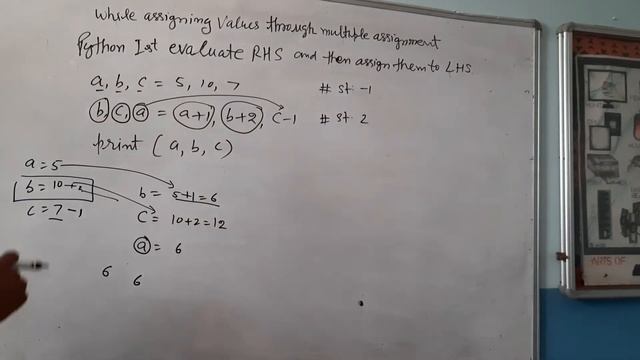 while assigning values through multiple assignment
Python Ist evaluate RHS and then assign them to LHS
a, b, c = 5, 10, 7 # st: -1
b, c, a = a+1, b+2, c-1 # st: 2
print (a, b, c)
a = 5
b = 10+2
c = 7-1
b = 5+1 = 6
c = 10+2 = 12
a = 6
6 6
ARTS OF